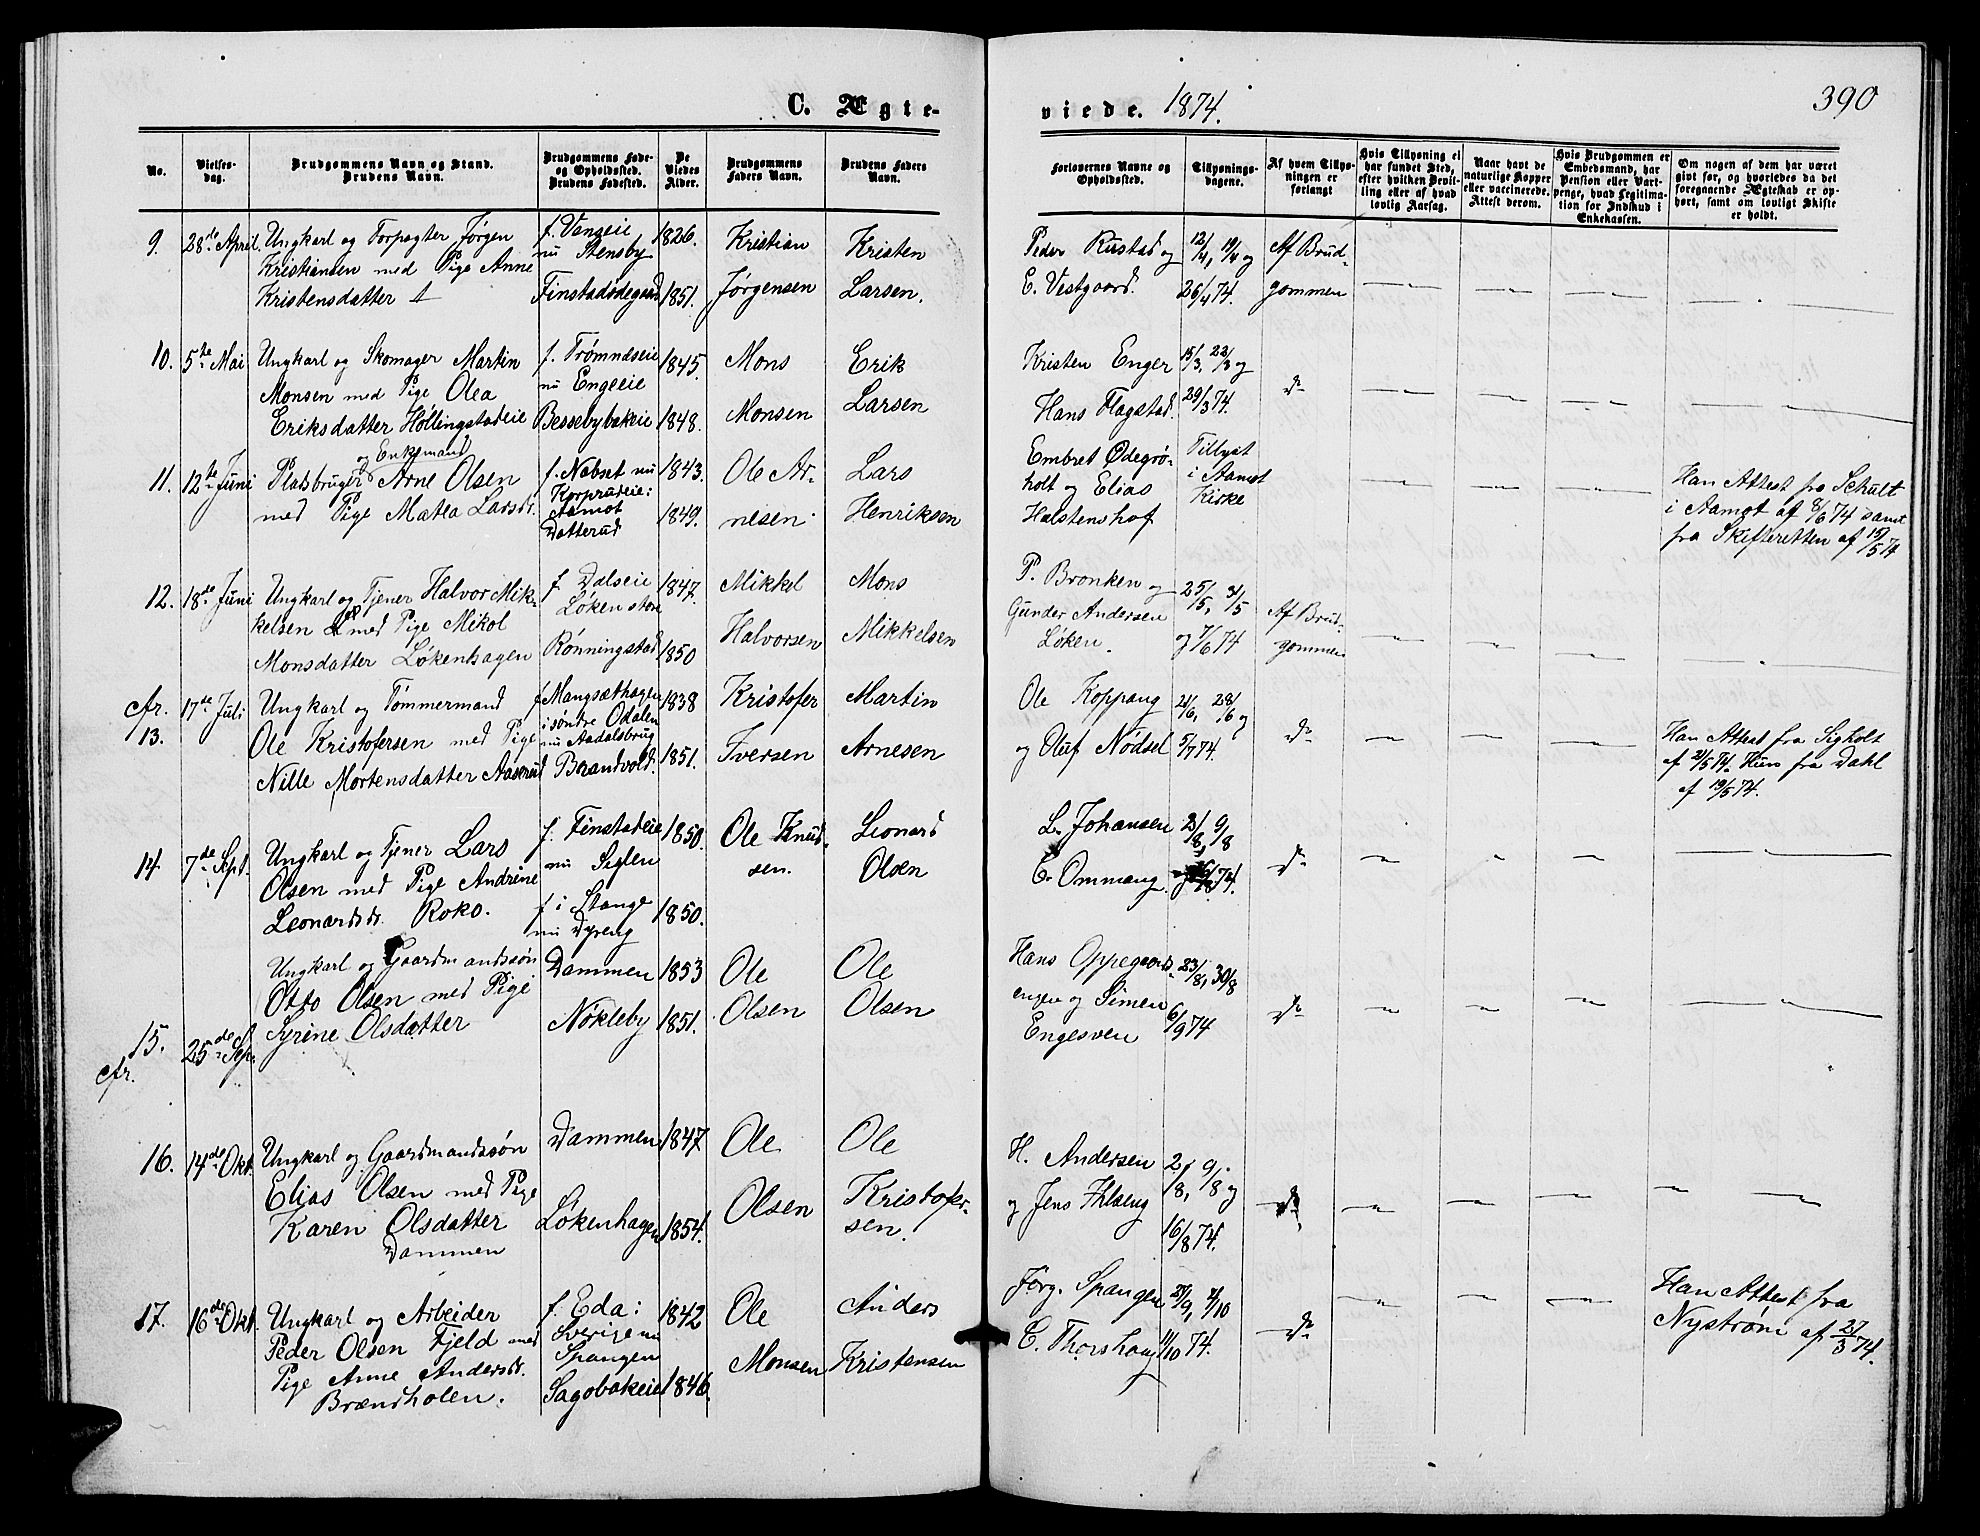 C. Ægte-
No.
Vielses-
dag.
Brudgommens Navn og Stand.
Brudens Navn.
Brudgommens Føde-
og Opholdssted.
Brudens Fødested.
De
Viedes
Alder.
Brudgommens
Faders Navn.
Brudens Faders
Navn.
9. 28de April. Ungkarl og Forpagter Jørgen f. Vangeie 1826. Kristian Kristen
Kristiansen med Pige Anne nu Stensby
Kristensdatter Finstadødegaard 1851. Jørgensen Larsen.
10. 5te Mai Ungkarl og Skomager Martin f. Trømnæseie 1845. Mons Erik
Monsen med Pige Olea nu Engeeie
Eriksdatter Höllingstadeie Bessebybakeie 1848. Monsen Larsen
og Enkemand
11. 12te Juni Pladsbruger Arne Olsen f. Nabset nu 1843. Ole Ar- Lars
med Pige Matea Larsdr. Korprudeie: 
Aamot 1849. nesen. Henriksen
Datterud
12. 18de Juni Ungkarl og Tjener Halvor Mik- f Dalseie 1847. Mikkel Mons
kelsen med Pige Mikol Løken store
Monsdatter Løkenhagen Rönningstad 1850 Halvorsen Mikkelsen
cfr. 17de Juli Ungkarl og Tömmermand f Mangsæthagen 1838 Kristofer Martin
13. Ole Kristofersen med Pige i søndre Odalen
nu Aadalsbrug
Nille Mortensdatter Aaserud Brandvold. 1851. Iversen Arnesen
14. 7de Sept. Ungkarl og Tjener Lars f. Finstadeie 1850. Ole Knud- Leonard
Olsen med Pige Andrine nu Siglen sen. Olsen
Leonardsdr. Roko. f i Stange 1850.
nu Dyreng
Ungkarl og Gaardmandssøn Dammen 1853 Ole Ole
Otto Olsen med Pige
Syrine Olsdatter Nökleby 1851. Olsen Olsen
15. 25de Sep.
cfr.
16. 14de Okt. Ungkarl og Gaardmandssön Dammen 1847. Ole Ole
Elias Olsen med Pige
Karen Olsdatter Løkenhagen 1854. Olsen Kristofer-
Dammen sen.
17. 16de Okt. Ungkarl og Arbeider f. Eda: 1842 Ole Anders
Peder Olsen Fjeld med Sverige nu
Pige Anne Andersdr. Spangen Monsen Kristensen
Brændholen. Sagobakeie 1846.
viede. 1874. 390
Forlovernes Navne og
Opholdssted.
Tillysnings-
dagene.
Af hvem Tillys-
ningen er
forlangt
Hvis Tillysning ei
har fundet Sted,
efter hvilken Bevil-
ling eller af hvad
lovlig Aarsag.
Naar havt de
naturlige Kopper
eller vaccinerede.
Attest derom.
Hvis Brudgommen er
Embedsmand, har
Pension eller Vart-
penge, hvad Legitima-
tion for Indskud i
Enkekassen.
Om nogen af dem har været
gift før, og hvorledes da det
foregaaende Ægteskab er op-
hørt, samt om lovligt Skifte
er holdt.
Peder Rustad og 12/4, 19/4 og Af Brud-
E. Vestgaard. 26/4 74. gommen
Kristen Enger 15/3, 22/3 og
Hans Flagstad. 29/3 74. do
Embret Ødegrö- Tillyst
holt og Elias i Aamot
Halstenshof Kirke
Han Attest fra Schult
i Aamot af 8/6 74 samt
fra Skifteretten af 19/5 74
P. Bronken og 25/5, 31/5
Gunder Andersen Af Brud-
Løken. og 7/6 74 gommen
Ole Koppang 21/6, 28/6 og
og Oluf Nödsel 5/7 74. do
Han Attest fra Sigholt
af 21/5 74. Hun fra Dahl
af 19/5 74.
L. Johansen 2/8, 9/8
C. Ommang. 16/8 74. do
Hans Oppegaards- 23/8, 30/8
engen og Simen do
Engesveen 6/9 74
H. Andersen 2/8, 9/8 og
og Jens Ihlberg do
16/8 74.
Jörg. Spangen 27/9, 4/10
C. Thorshaug 11/10 74. do
Han Attest fra
Nyström af 27/3 74.